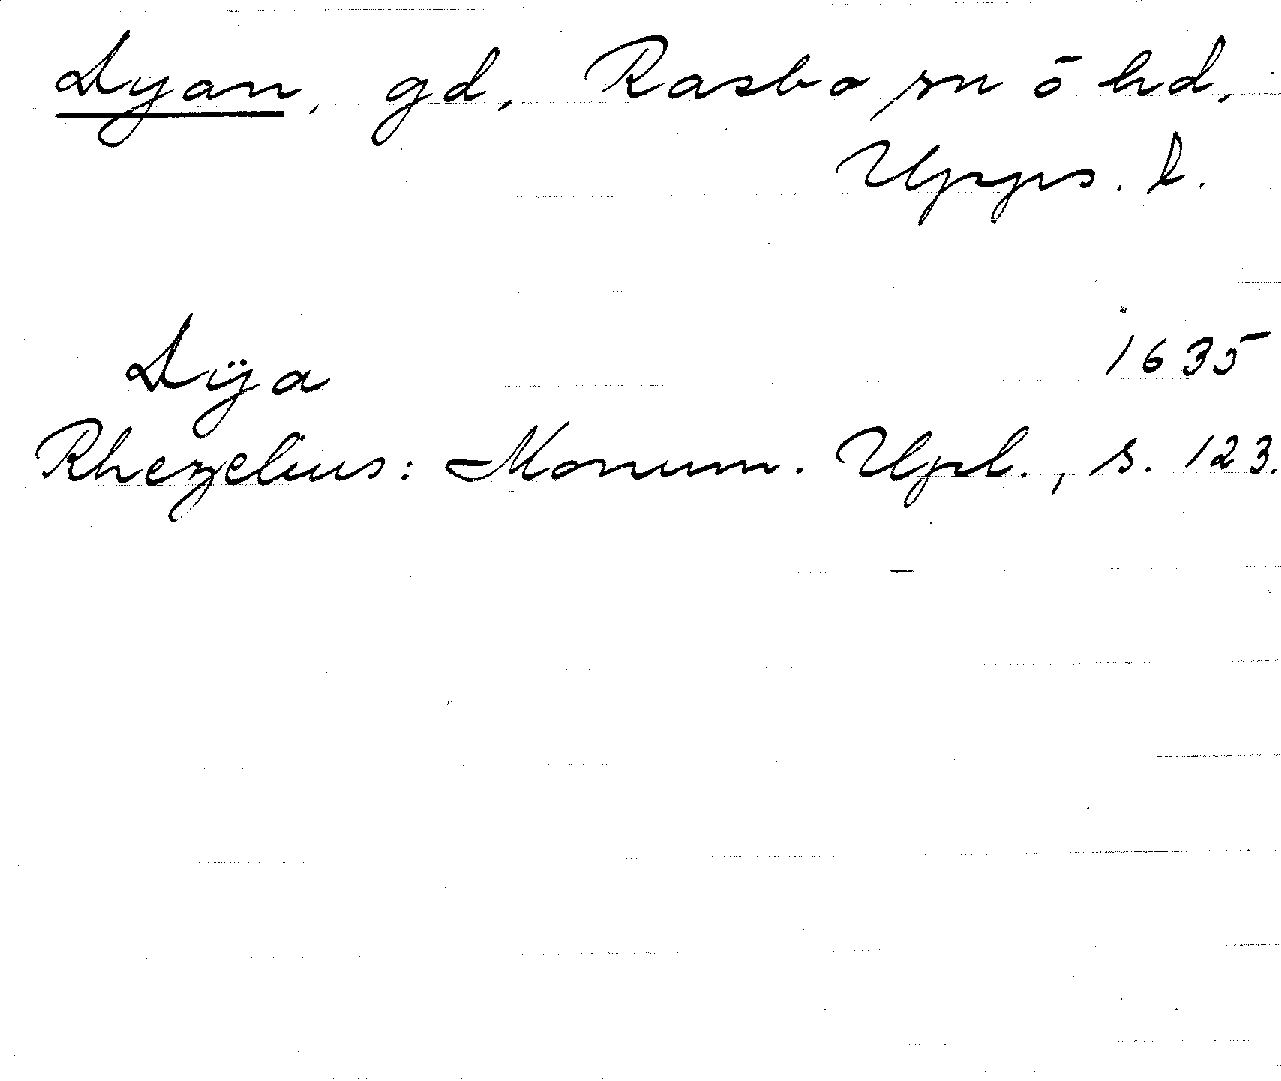 Dyan, gd, Rasbo sn o hd,
Upps. l.
Dÿa 1635
Rhezelius: Monum. Upl., s. 123.